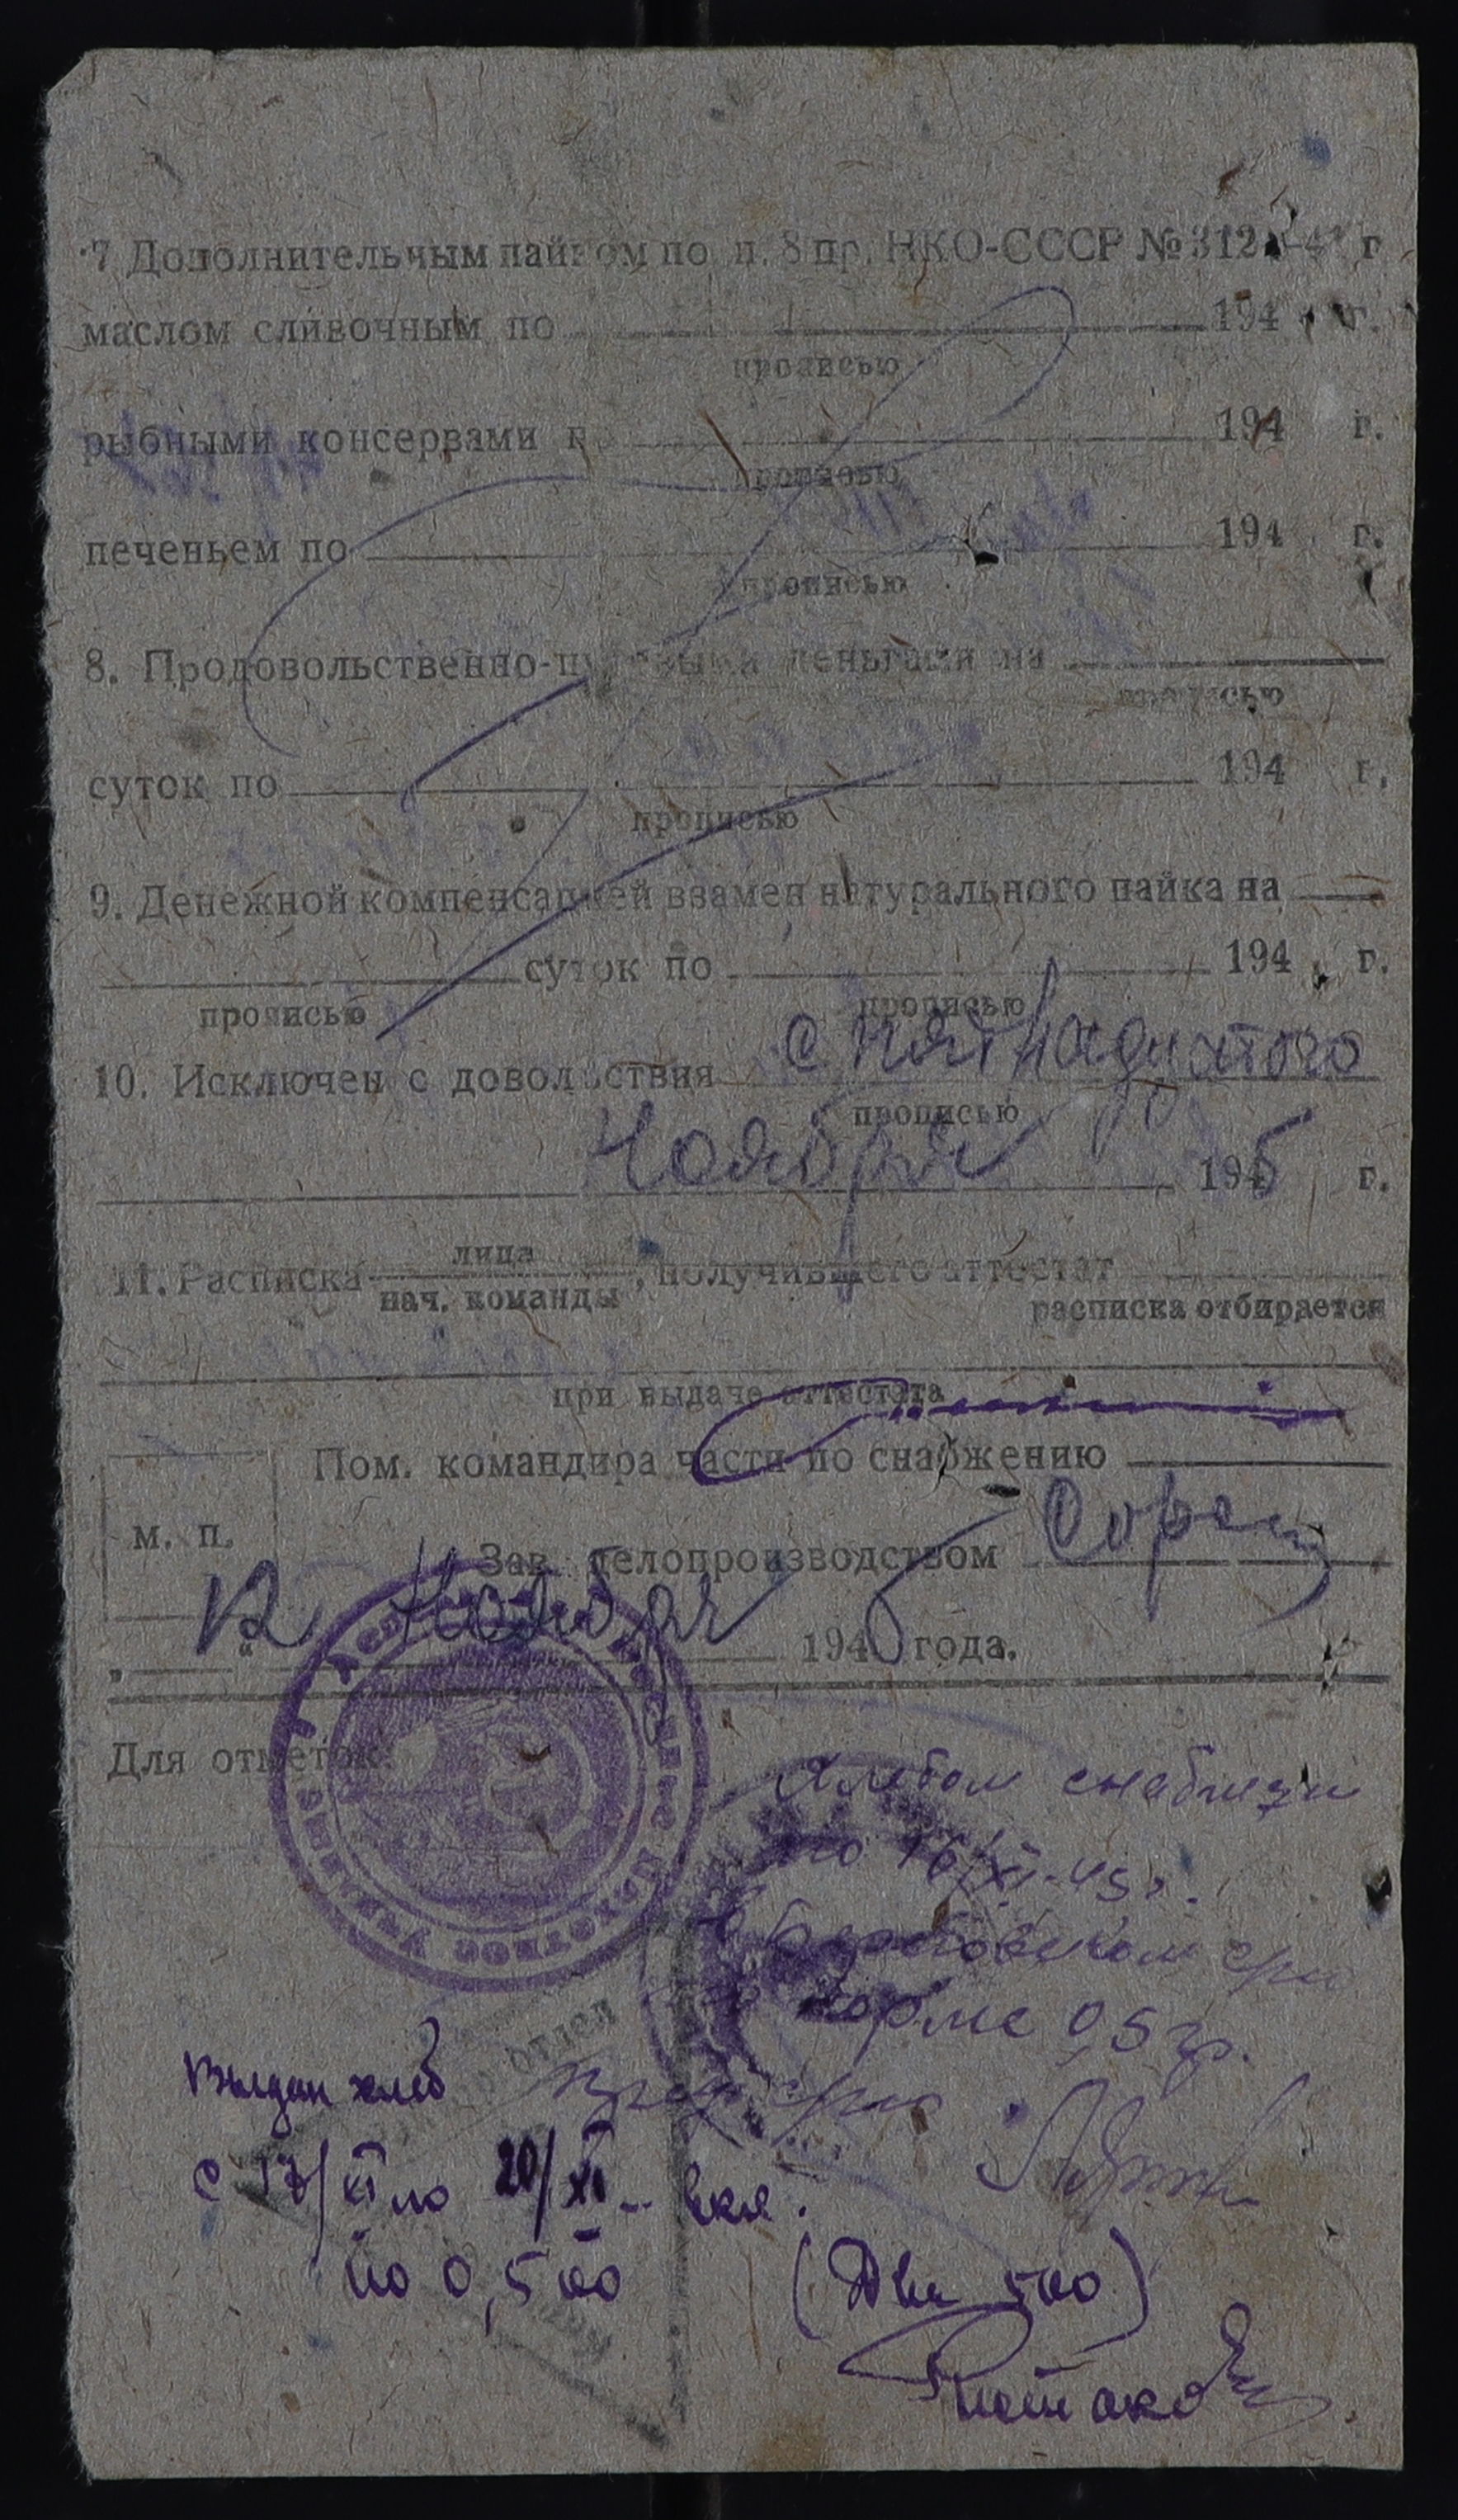 7 Дополнительным пайком по п. 8 пр. НКО-СССР № 312 г
маслом сливочным по 194 г.
прописью
рыбными консервами п 194 г.
прописью
печеньем по 194 г.
прописью
8. Продовольственно-путевыми деньгами на
прописью
суток по 194 г.
прописью
9. Денежной компенсацией взамен натурального пайка на
суток по 194 г.
прописью прописью
10. Исключен с довольствия с пятнадцатого
прописью
Ноября 1945 г.
11. Расписка лица
нач. команды, получившего аттестат
расписка отбирается
при выдаче аттестата
Пом. командира части по снабжению
м. п.
Зав. делопроизводством
„12“ Ноября 1945 года.
Для отметок:
Пехотное Училище
Хлебом снабжен
по 16/XI-45 г.
норме 0,5 гр.
отдел
Выдан хлеб
с 17/XI по 20/XI вкл.
по 0,500 (Два 500)